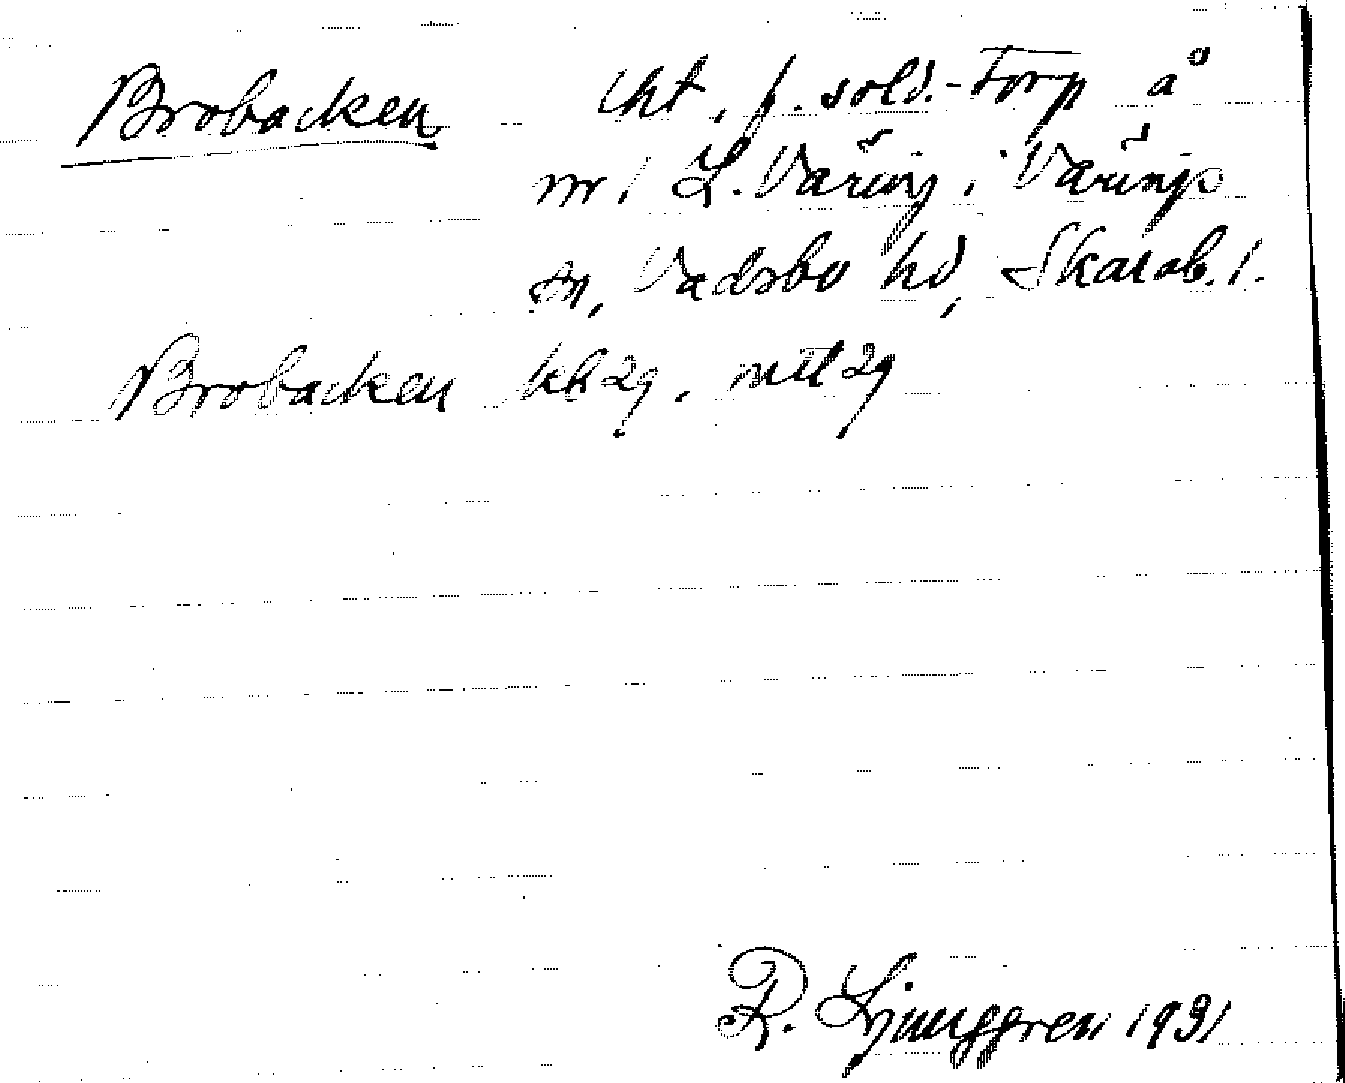 Brobacken lht, f. sold.-torp å
nr 1 L. Väring, i Värings
sn, Vadsbo hd, Skarab. l.
Brobacken kb 29, mtl 29
R. Ljunggren 1931